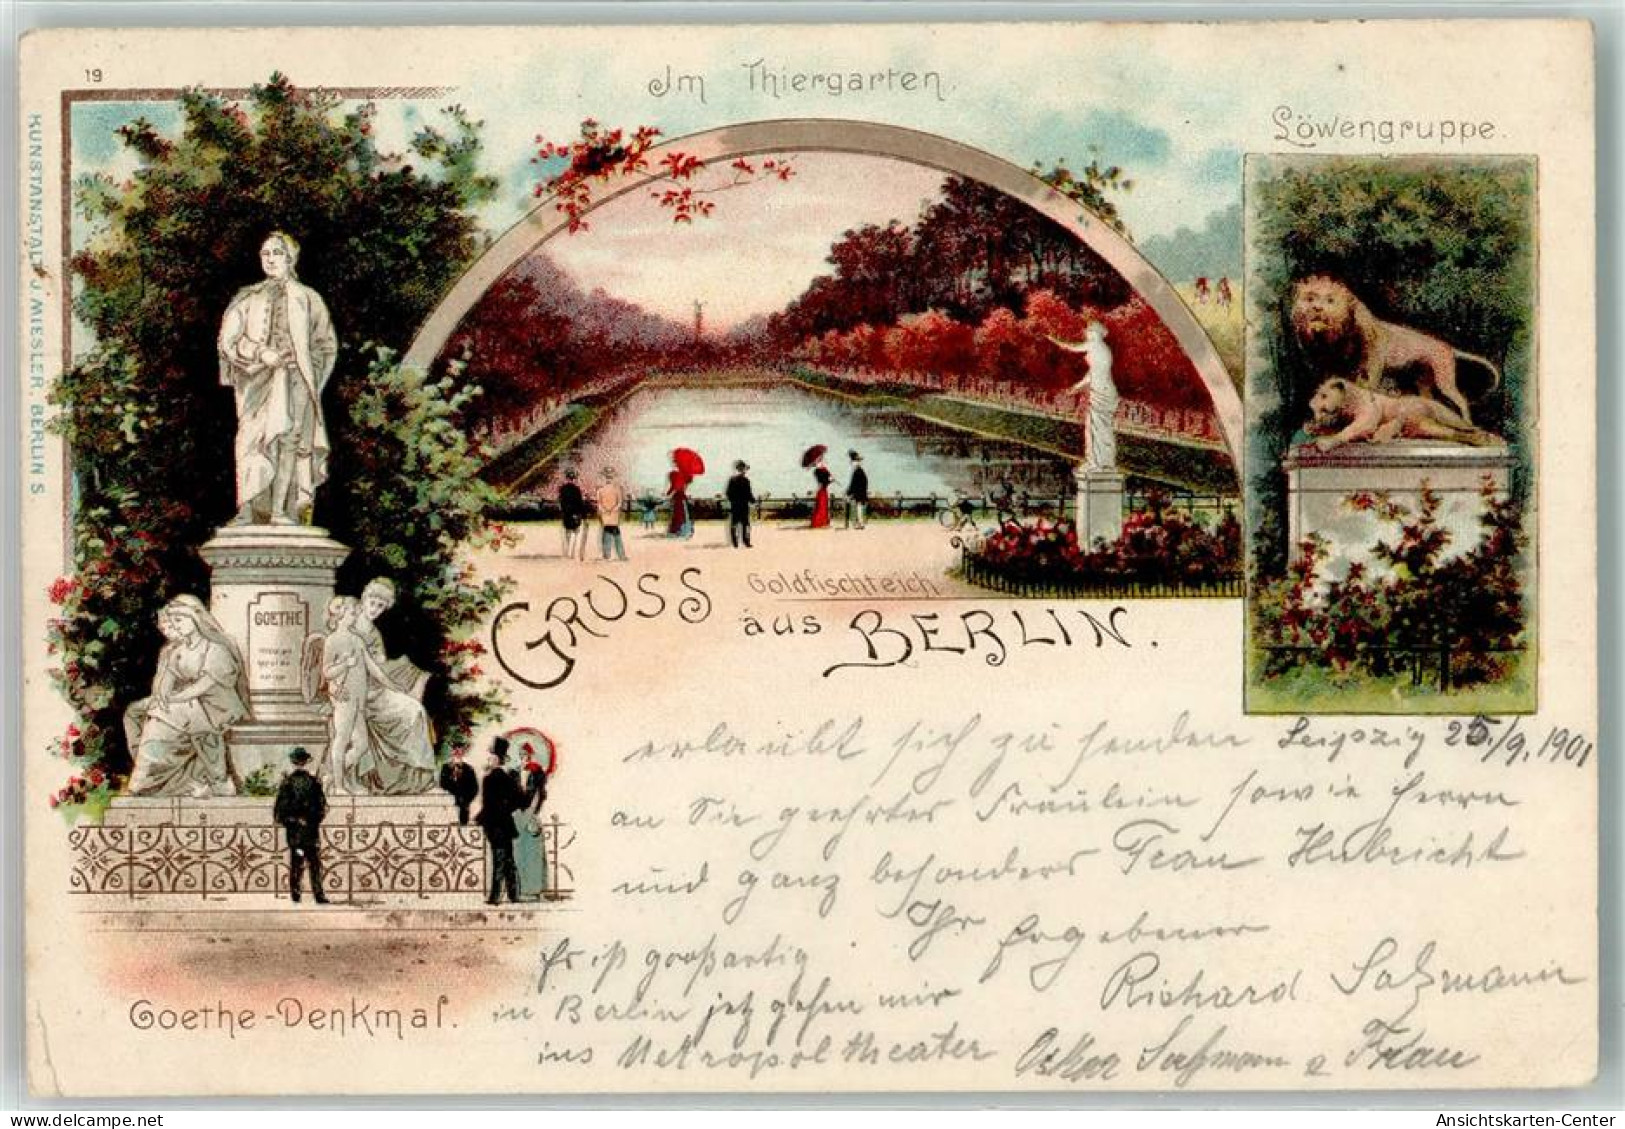 19
Im Thiergarten.
Löwengruppe.
KUNSTANSTALT J. MIESLER, BERLIN S.
GOETHE
Goldfischteich
GRUSS aus BERLIN.
Goethe-Denkmal.
erlaubt sich zu senden Leipzig 25./9. 1901
an Sie geehrtes Fräulein sowie Herrn
und ganz besonders Frau Hubricht
Ihr Ergebener
Richard Saßmann
Es ist großartig
in Berlin jetz gehen wir
ins Metropoltheater Oskar Saßmann & Frau
Ansichtskarten-Center
www.delcampe.net